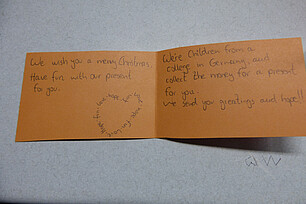 We wish you a merry Christmas.
Have fun with our present
to you.
hope
We're Children from a
college in Germany, and
collect the money for a present
for you.
We send you greetings and hope!!